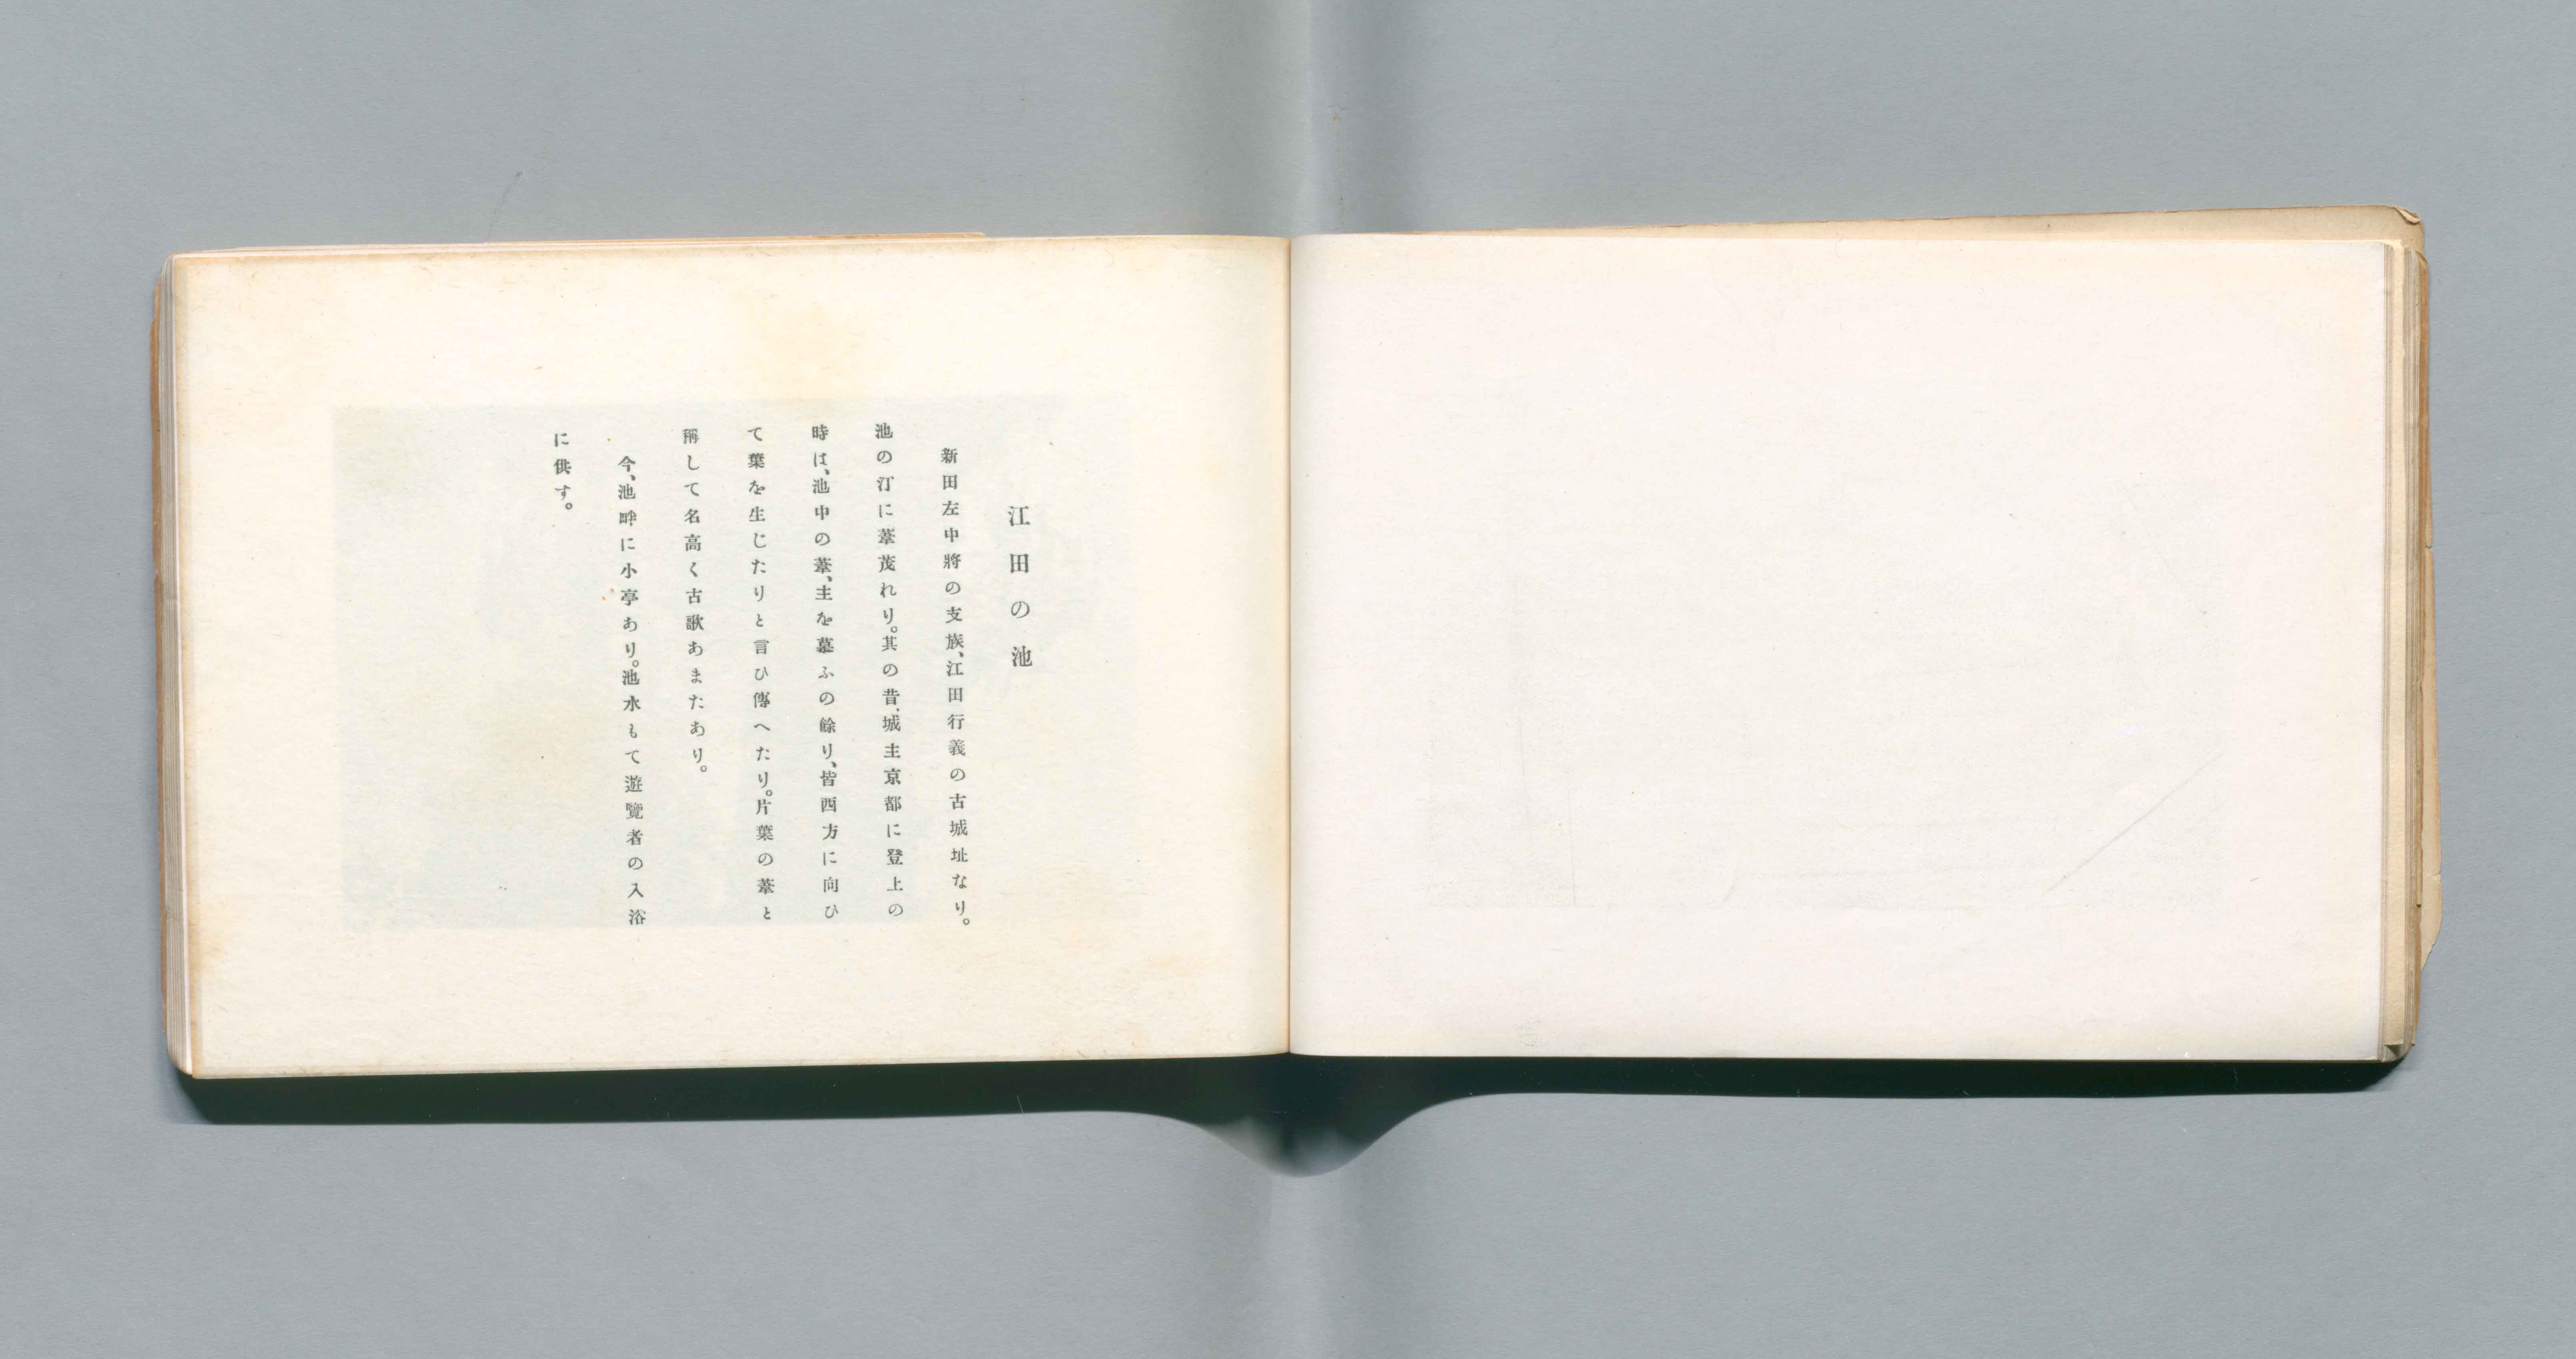 江田の池
新田左中將の支族、江田行義の古城址なり。
池の汀に葦茂れり。其の昔、城主京都に登上の
時は、池中の葦、主を慕ふの餘り、皆西方に向ひ
て葉を生じたりと言ひ傳へたり。片葉の葦と
稱して名高く古歌あまたあり。
今、池畔に小亭あり。池水もて遊覽者の入浴
に供す。